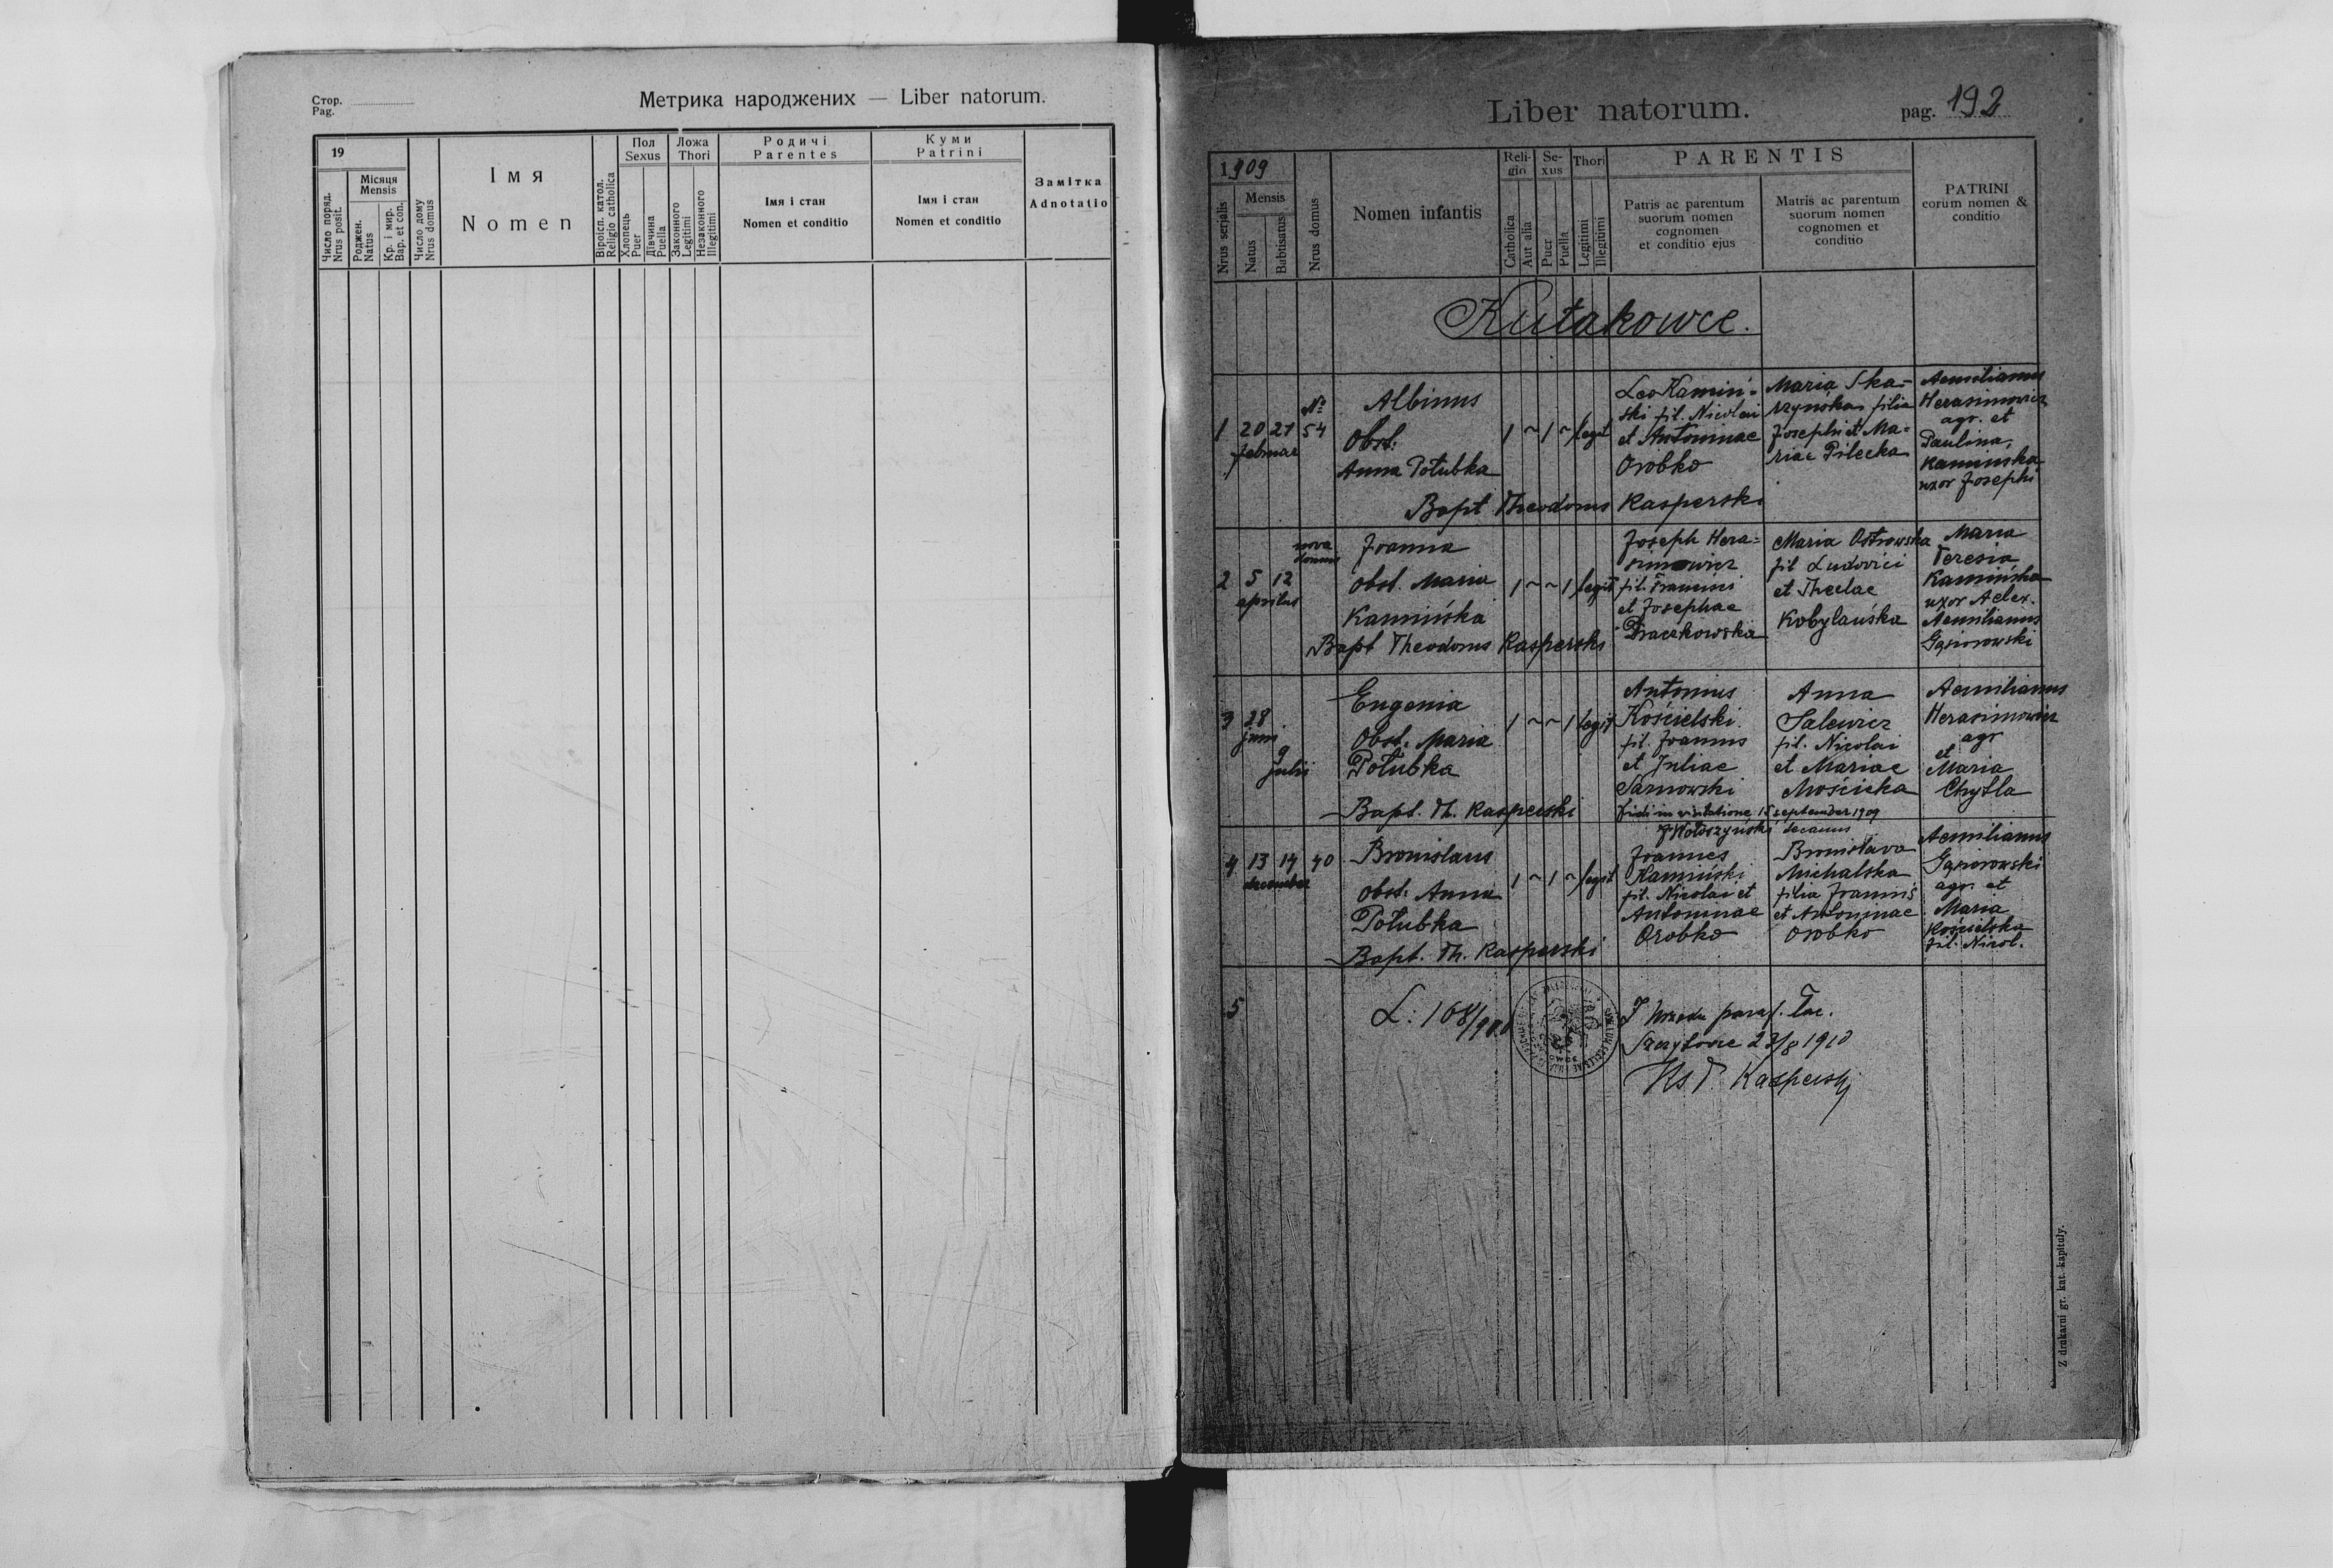 Стор.
Pag.
Метрика народжених — Liber natorum.
19
Число поряд.
Nrus posit.
Місяця
Mensis
Роджен.
Natus
Кр. і мир.
Bap. et con.
Число дому
Nrus domus
Імя
Nomen
Віроісп. катол.
Religio catholica
Пол
Sexus
Хлопець
Puer
Дівчина
Puella
Ложа
Thori
Законного
Legitimi
Незаконного
Illegitimi
Родичі
Parentes
Імя і стан
Nomen et conditio
Куми
Patrini
Імя і стан
Nomen et conditio
Замітка
Adnotatio
Liber natorum.
pag. 192
1909
Nrus serjalis
Mensis
Natus
Babtisatus
Nrus domus
Nomen infantis
Reli-
gio
Catholica
Aut alia
Se-
xus
Puer
Puella
Thori
Legitimi
Illegitimi
PARENTIS
Patris ac parentum
suorum nomen
cognomen
et conditio ejus
Matris ac parentum
suorum nomen
cognomen et
conditio
PATRINI
eorum nomen &
conditio
Kutakowce.
1
20 21
februar
No
54
Albinus
Obst:
Anna Połubka
1 ~ 1 ~ legit
Leo Kamiń-
ski fil. Nicolai
et Antoninae
Orobko
Maria Ska-
rzyńska filia
Josephi et Ma-
riae Pilecka
Aemilianus
Herasimowicz
agr. et
Paulina
Kamińska
uxor Josephi
Bapt Theodorus Kasperski
2
5 12
aprilus
nova
domus
Joanna
Obst. Maria
Kamińska
1 ~ ~ 1 legit
Joseph Hera-
simowicz
fil.
et Josephae
Draczkowska
Maria Ostrowska
fil Ludovici
et Theclae
Kobylańska
Maria
Teresia
Kamińska
uxor Alex.
Aemilianus
Gąsiorowski
Bapt Theodorus Kasperski
3
28
juni
9
julii
Eugenia
Obst. Maria
Połubka
1 ~ ~ 1 legit
Antonius
Kościelski
fil. Joannis
et Juliae
Sarnowski
Anna
Salewicz
fil. Nicolai
et Mariae
Mościcka
Aemilianus
Herasimowicz
agr
et
Maria
Chytla
Bapt. Th. Kasperski
Vidi in visitatione 15 september 1909
J Wołoszyński decanus
4
13 14
december
40
Bronislaus
Obst: Anna
Połubka
1 ~ 1 ~ legit
Joannes
Kamiński
fil. Nicolai et
Antoninae
Orobko
Bronislava
Michalska
filia Joannis
et Antoninae
Orobko
Aemilianus
Gąsiorowski
agr. et
Maria
Kościelska
fil. Nicol.
Bapt. Th. Kasperski
5
L: 168/910
Z Urzędu paraf. łac.
23/8 1910
Ks T. Kasperski
Z drukarni gr. kat. kapituły.